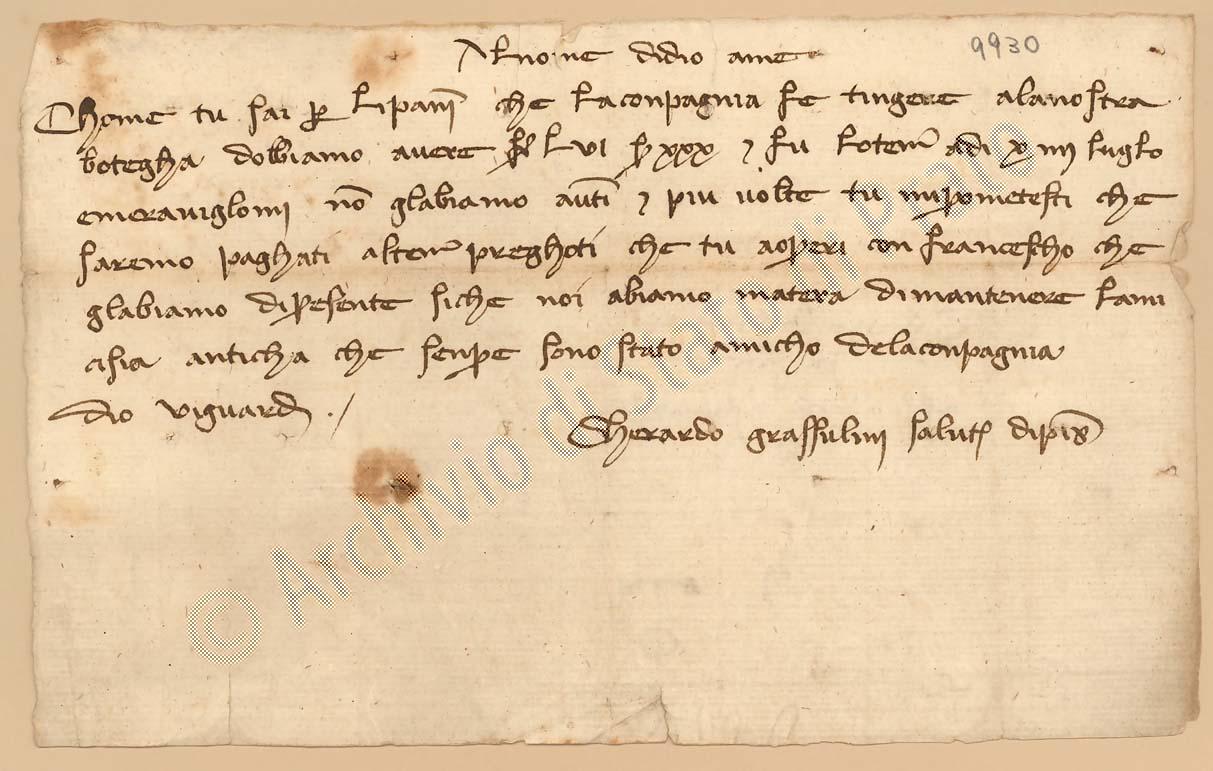 Al nome didio ame
9930
Chome tu sai p lipanī che laconpagnia fe tingere alanostra
botegha dobbiamo avere lvi xxx e fu lotem̄ adi x iiij luglo
emeraviglomi nō glabiamo autī e piu volte tu mipometesti che
saremo paghati altem̄ preghoti che tu aoperi con francescho che
glabiamo dipesente siche noi abiamo matera dimantenere lami
cisia anticha che senpe sono stato amicho delaconpagnia
dio viguard ./
Gherardo grassulini salut dipis
© Archivio di Stato di Prato